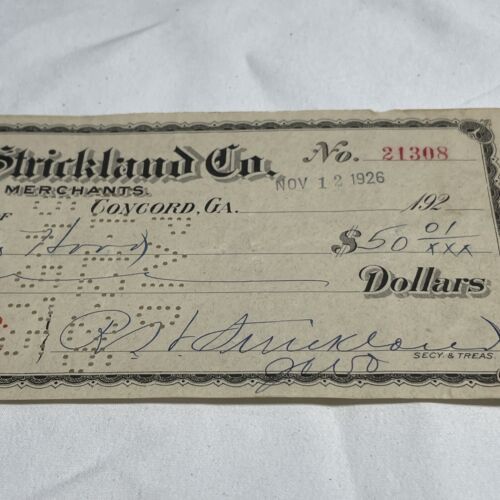 Strickland Co. No. 21308
MERCHANTS.
NOV 12 1926
CONCORD, GA. 192
OF
Hood $50 01/xxx
Dollars
Strickland
SECY. & TREAS.